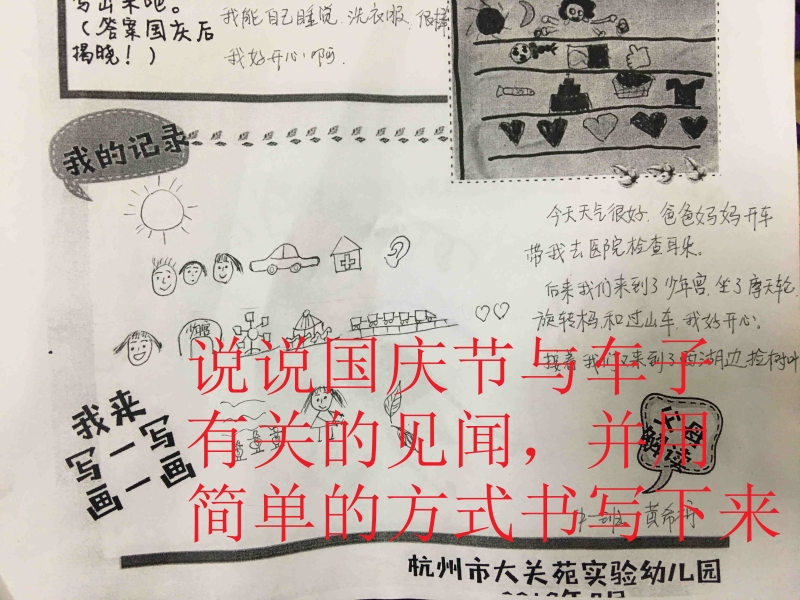 写出来吧。
（答案国庆后
揭晓！）
我能自己睡觉、洗衣服、很棒
我好开心啊。
我的记录
今天天气很好，爸爸妈妈开车
带我去医院检查耳朵。
后来我们来到了少年宫，坐了摩天轮，
旋转木马和过山车，我好开心。
接着我们又来到了西湖边捡树叶
说说国庆节与车子
有关的见闻，并用
简单的方式书写下来
我来
写一写
画一画
父母
解读
中一班
杭州市大关苑实验幼儿园